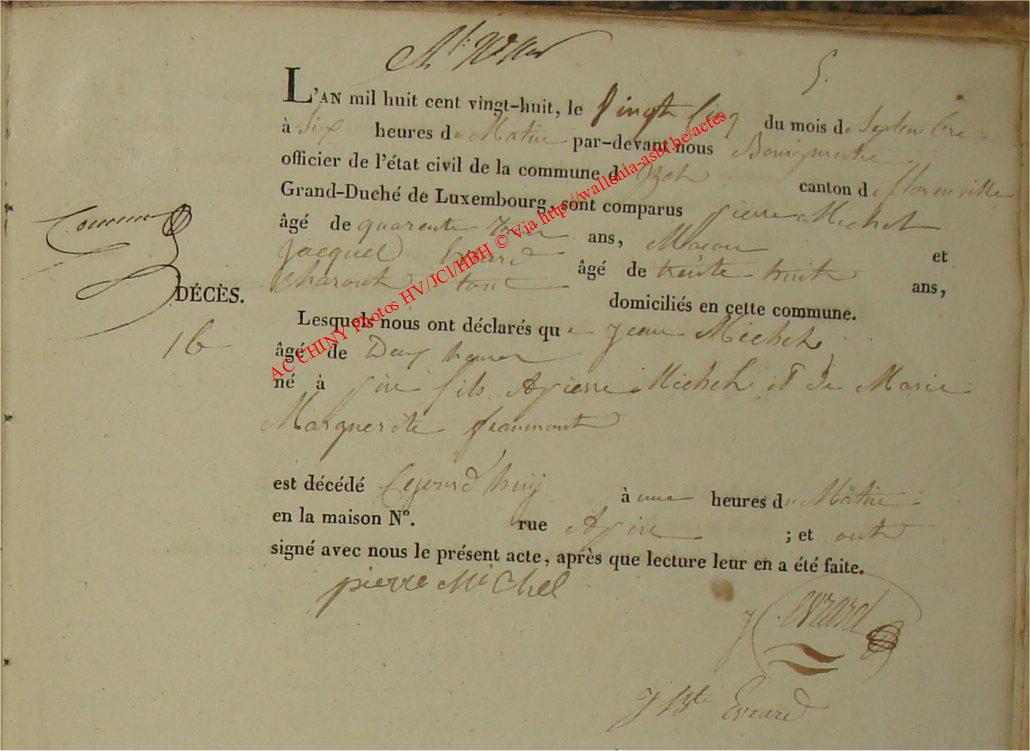 5.
L'AN mil huit cent vingt-huit, le vingt Cinq du mois de Septembre
à Six heures du Matin par-devant nous Bourgmestre
officier de l'état civil de la commune d Izel canton d florenville
Grand-Duché de Luxembourg, sont comparus pierre Michel
âgé de quarente ans, Macon et
jacque Evrard âgé de trente huit ans,
Charon tous domiciliés en cette commune.
DÉCÈS.
16
Lesquels nous ont déclarés que Jean Michel
âgé de Deux heures
né à fils A pierre Michel et De Marie
Marguerite fraumont
est décédé Cejourd huij à une heures du Matin
en la maison N°. rue A ; et onts
signé avec nous le présent acte, après que lecture leur en a été faite.
pierre Michel
J Evrard
J Bte Evrard
AC CHINY Photos HV/JCl/HBH © Via http://wallonia-asbl.be/actes